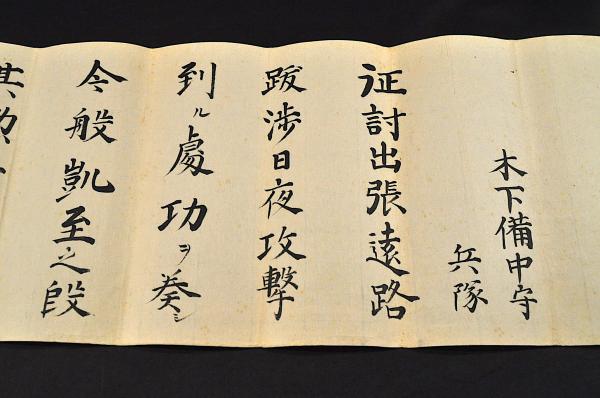 木下備中守
兵隊
征討出張遠路
跋渉日夜攻撃
到ル處功ヲ奏シ
今般凱至之段
其功